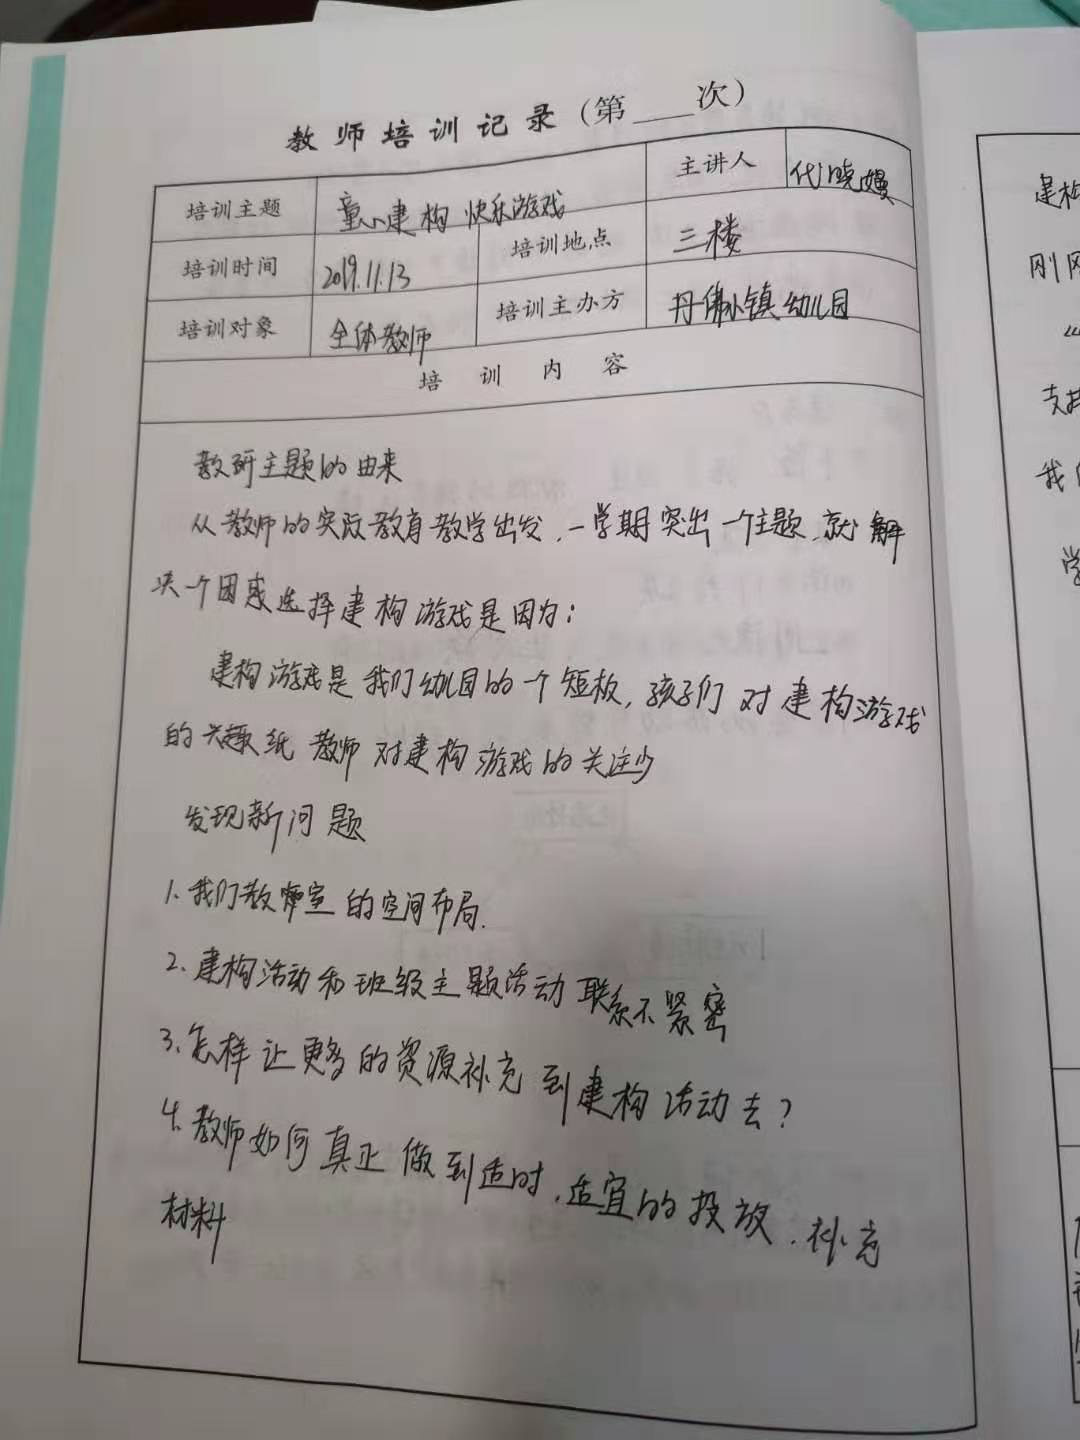 教师培训记录(第____次)
培训主题 童心建构 快乐游戏 主讲人 代晓嫚
培训时间 2019.11.13 培训地点 三楼
培训对象 全体教师 培训主办方 丹佛小镇幼儿园
培训内容
教研主题的由来
从教师的实际教育教学出发,一学期突出一个主题,就解
决一个困惑选择建构游戏是因为:
建构游戏是我们幼儿园的一个短板,孩子们对建构游戏
的兴趣纸 教师对建构游戏的关注少
发现新问题
1.我们教室的空间布局.
2.建构活动和班级主题活动联系不紧密
3.怎样让更多的资源补充到建构活动去?
4.教师如何真正做到适时,适宜的投放.补充
材料
建构
刚
支持
我们
学